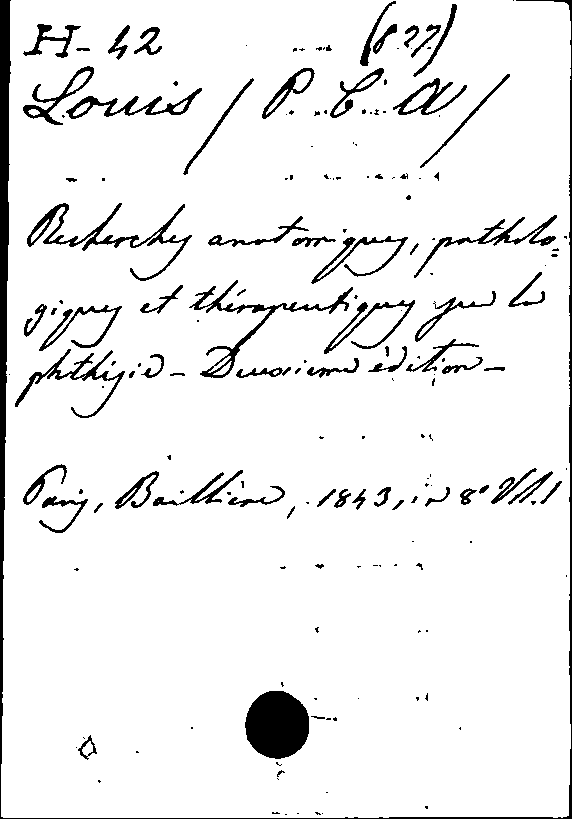 H-42 (827)
Louis / P. C. A /
Recherches anatomiques, patholo=
giques et thérapeutiques sur la
phthisie - Deuxième édition -
Paris, Baillière, 1843, in 8° Vol. 1